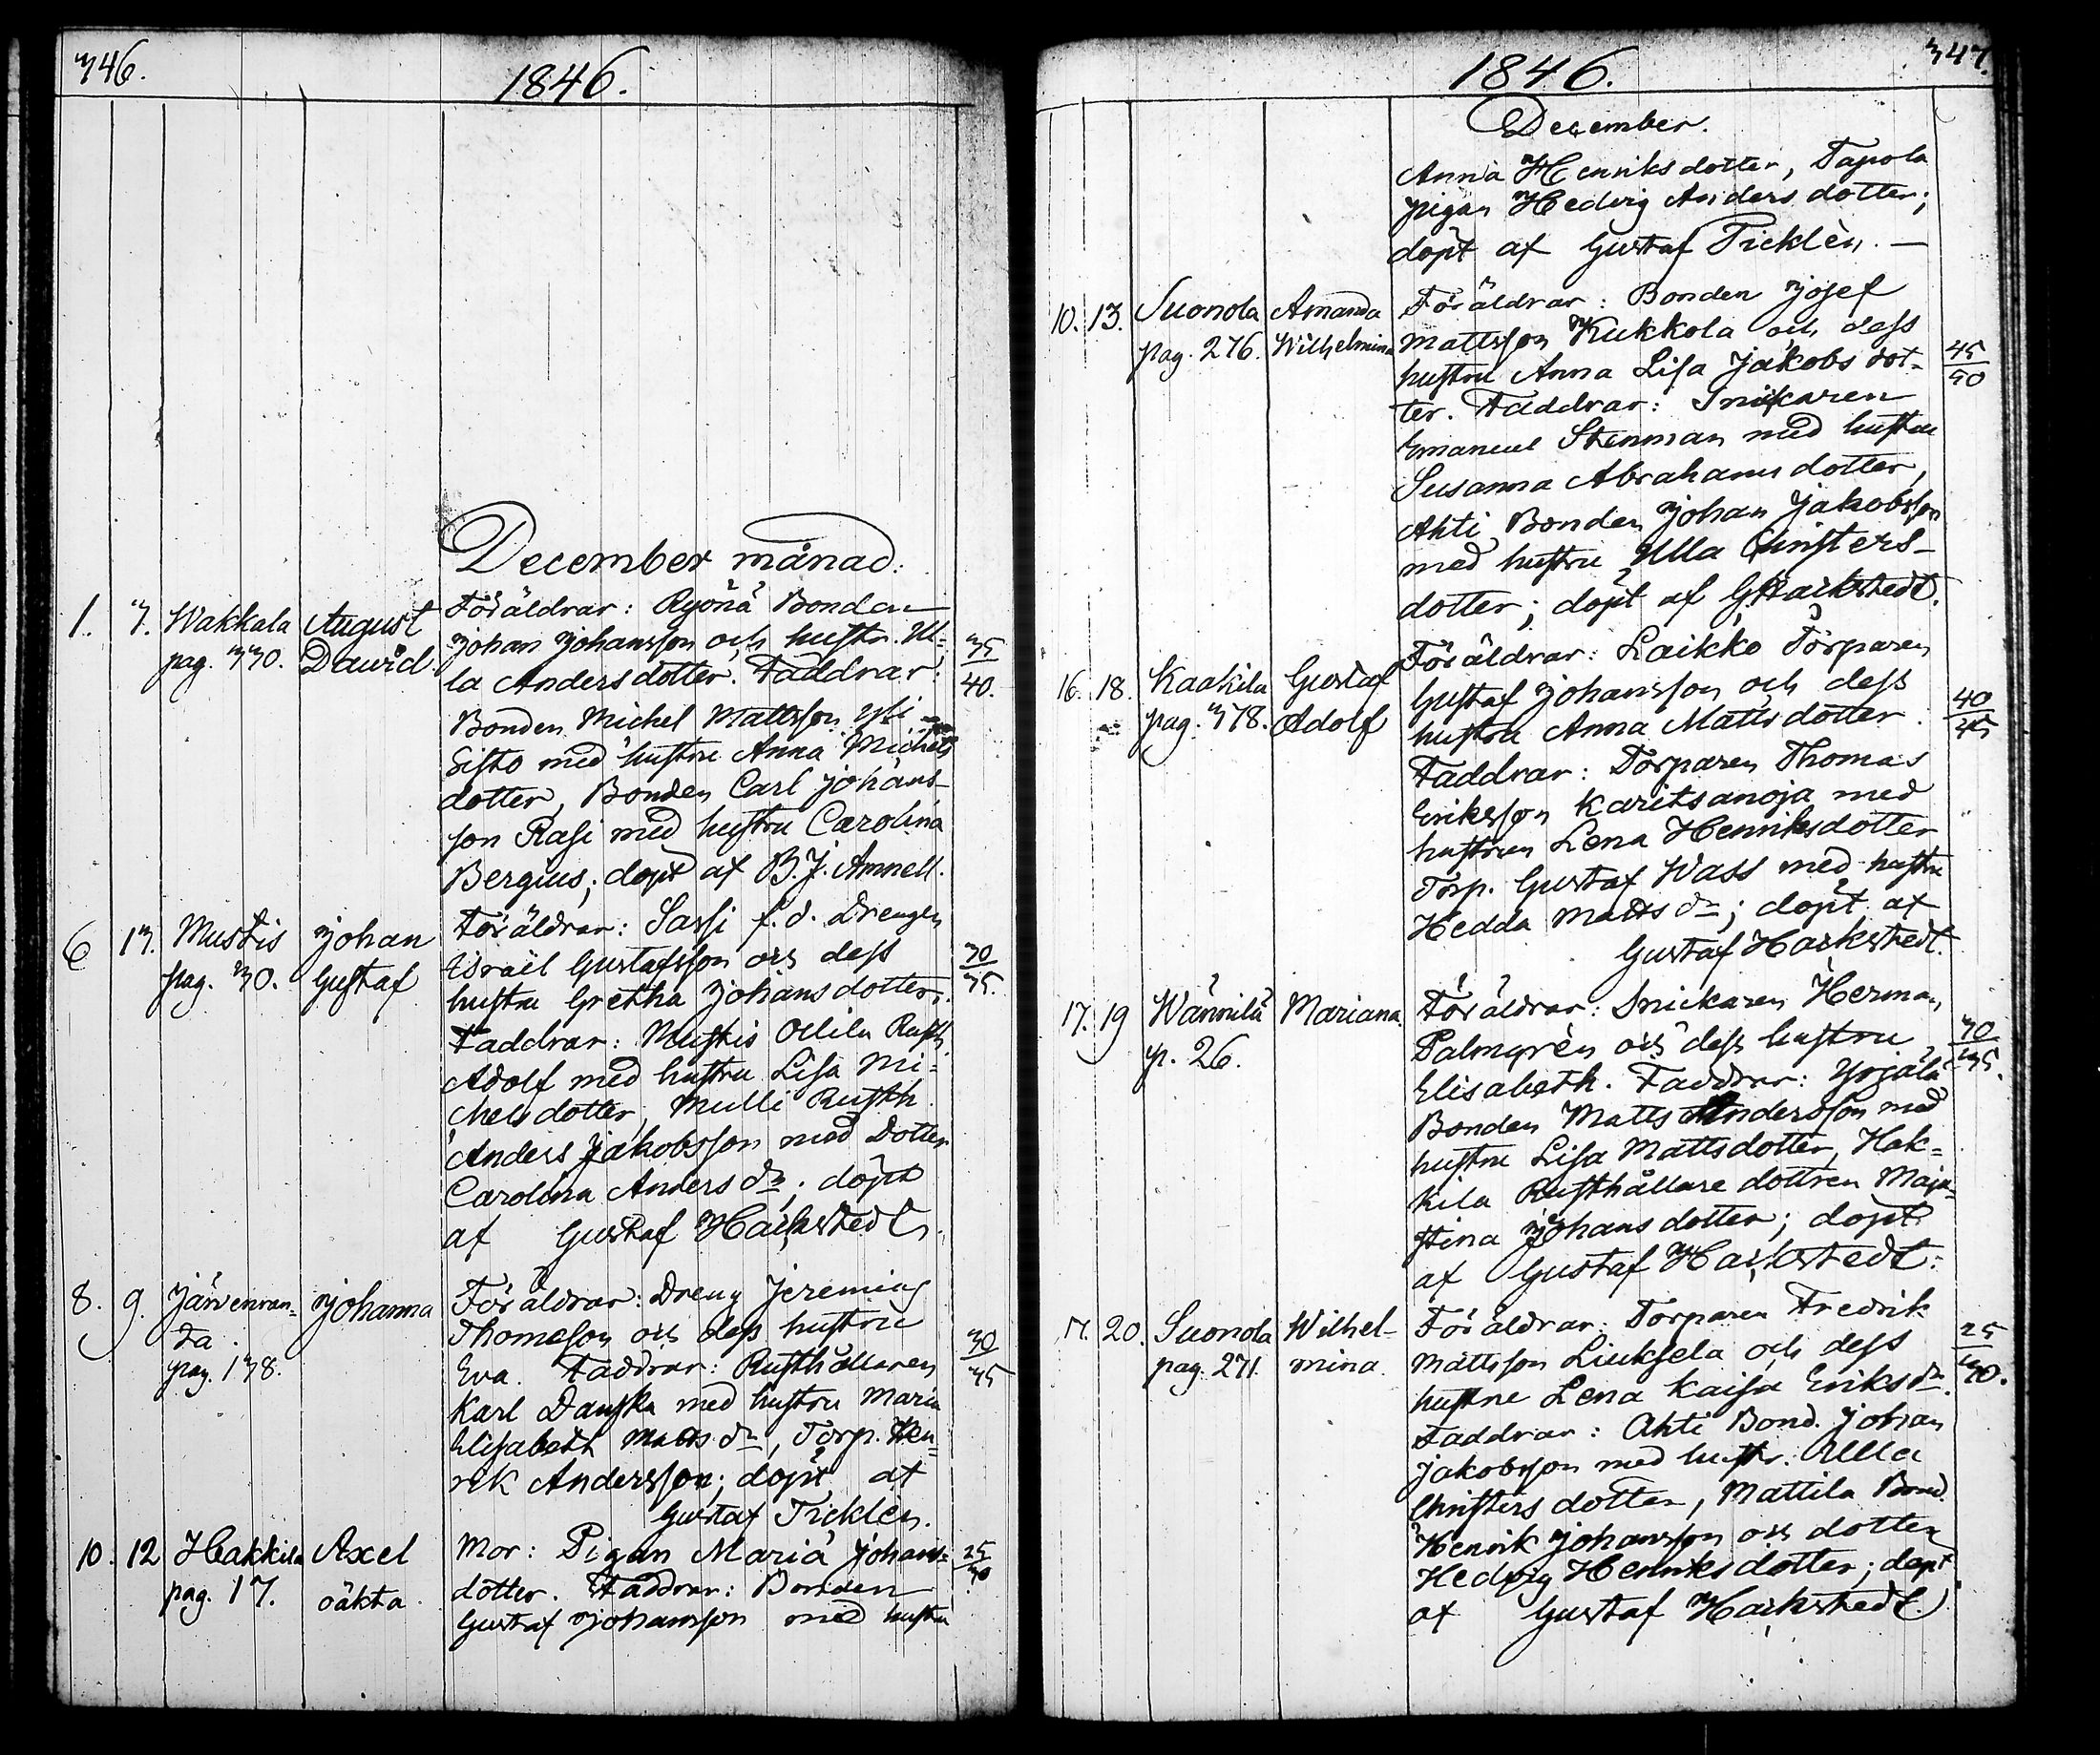 346.
1846.
December månad.
1. 3. Wakkala August Föräldrar: Ryönä Bonden
pag. 330. Dawid Johan Johansson och hustr. Ul= 35/40.
la Andersdotter. Faddrar:
Bonden Michel Mattsson Yli
Sisto med hustru Anna Michels
dotter, Bonden Carl Johans-
son Rasi med hustru Carolina
Bergius; döpt af B. J. Amnell.
6 13. Mustis Johan Föräldrar: Sassi f. d. Drengen
pag. 30. Gustaf Israël Gustafsson och dess 30/35.
hustru Gretha Johansdotter.
Faddrar: Mustis Ollila Rusth.
Adolf med hustru Lisa Mi=
chelsdotter, Mulli Rusth.
Anders Jakobsson med Dotter
Carolina Anders dr; döpt
af Gustaf Hackstedt.
8. 9. Järvenran= Johanna Föräldrar: Dreng Jeremias
da Thomeson och dess hustru 30/35
pag. 138. Eva. Faddrar: Rusthållaren
Karl Danska med hustru Maria
Elisabeth Matts dr, Torp. Hen=
rik Andersson; döpt af
Gustaf Ticklén.
10. 12 Hakkila Axel Mor: Pigan Maria Johans= 25/30
pag. 17. oäkta. dotter. Faddrar: Bonden
Gustaf Johansson med hustru
347.
1846.
December.
Anna Henriksdotter, Tapola
pigan Hedvig Andersdotter;
döpt af Gustaf Ticklén. —
10. 13. Suonola Amanda Föräldrar: Bonden Josef
pag. 276. Wilhelmina Mattsson Kukkola och dess 45/50
hustru Anna Lisa Jakobs dot-
ter. Faddrar: Snickaren
Emanuel Stenman med hustru
Susanna Abrahamsdotter,
Ahti Bonden Johan Jakobsson
med hustru Ulla Christers-
dotter; döpt af G. Hackstedt.
16. 18. Kaakila Gustaf Föräldrar: Laikko Torparen
pag. 378. Adolf Gustaf Johansson och dess 40/45
hustru Anna Mattsdotter.
Faddrar: Torparen Thomas
Eriksson Karitsanoja med
hustrun Lena Henriksdotter
Torp. Gustaf Wass med hustru
Hedda Matts dr; döpt af
Gustaf Hackstedt.
17. 19 Wännilä Mariana. Föräldrar: Snickaren Herman
p. 26. Palmgrén och dess hustru 30/35.
Elisabeth. Faddrar: Yrjälä
Bonden Matts Andersson med
hustru Lisa Mattsdotter, Hak=
kila Rusthållare dottren Maja
Stina Johansdotter; döpt
af Gustaf Hackstedt.
17. 20. Suonola Wilhel- Föräldrar: Torparen Fredrik 25/30.
pag. 271. mina. Mattsson Liuksela och dess
hustru Lena Kaisa Eriks dr.
Faddrar: Ahti Bond. Johan
Jakobsson med hustr. Ulla
Christersdotter, Mattila Bond.
Henrik Johansson och dotter
Hedvig Henriksdotter; döpt
af Gustaf Hackstedt.